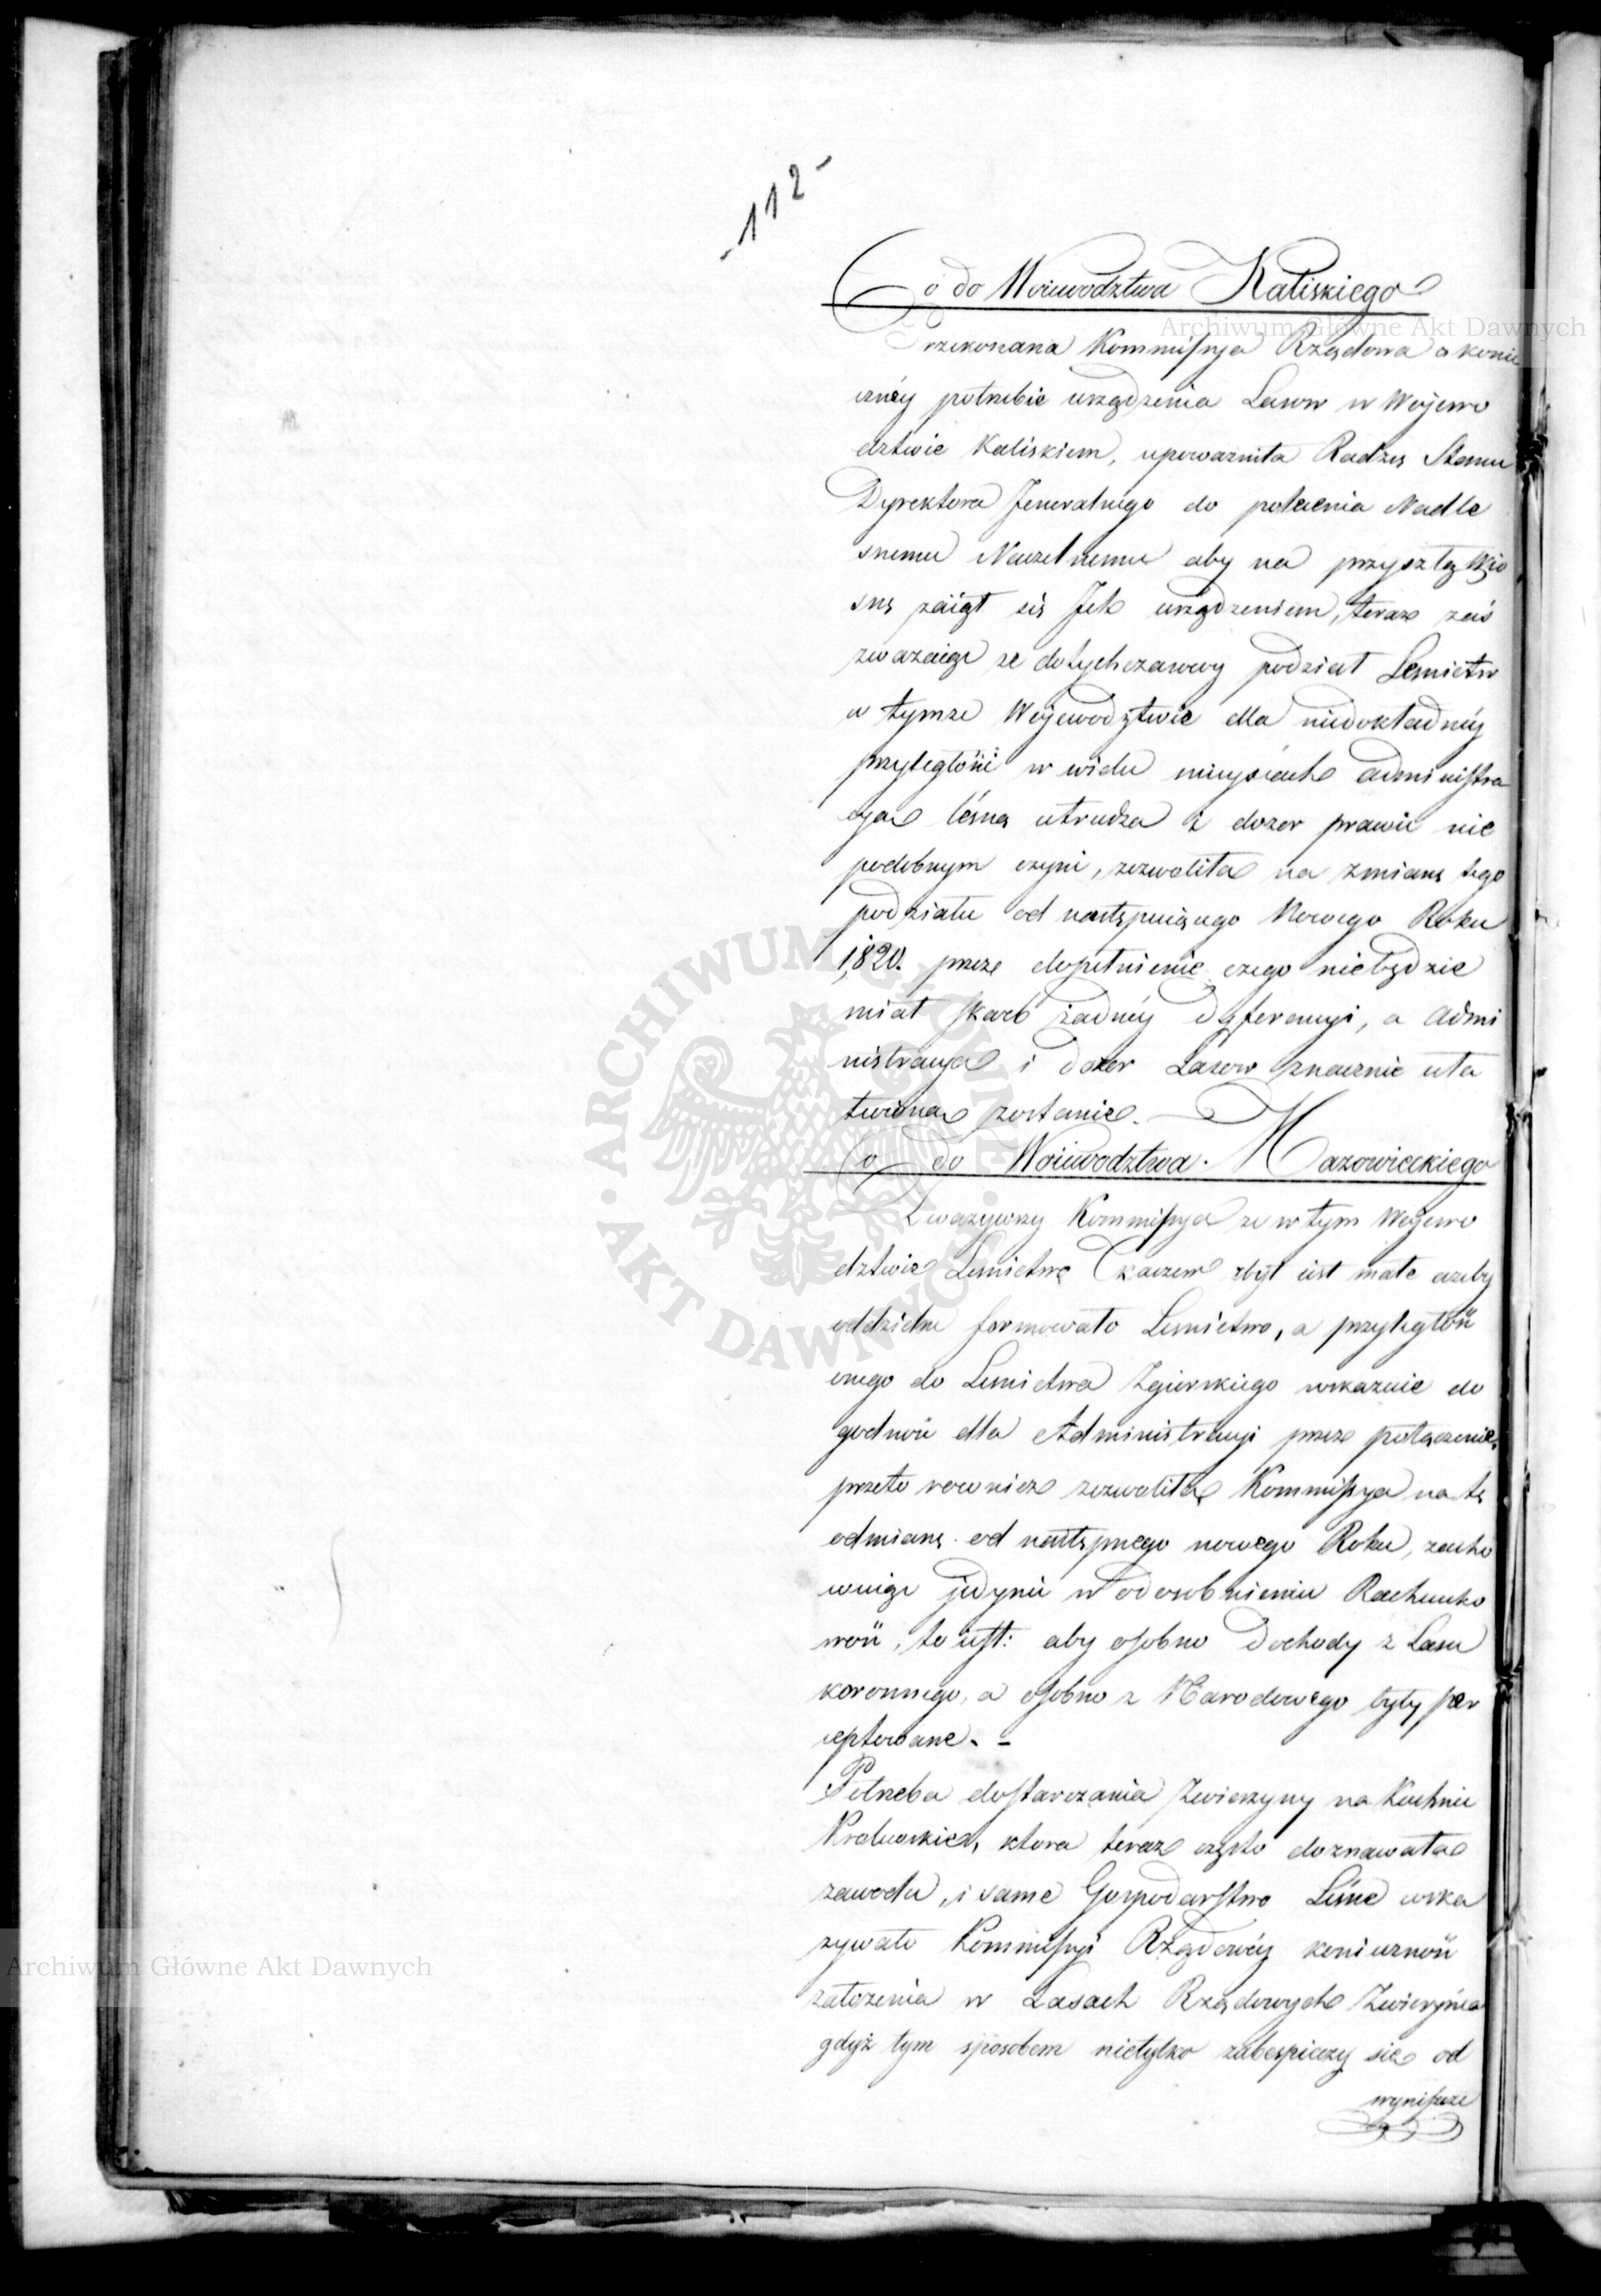 - 112 -
Co do Woiewodztwa Kaliskiego
Przekonana Kommissya Rządowa o konie
cznéy potrzebie urządzenia Lasow w Wojewo
dztwie Kaliskiem, upoważniła Radzcę Stanu
Dyrektora Jeneralnego do polecenia Nadle
snemu Naczelnemu aby na przyszłą Wio
snę zaiął się Ich urządzeniem, teraz zaś
zwazaiąc ze dotychczasowy podział Lesnictw
w tymze Wojewodztwie dla niedokładnéy
przyległości w wielu mieyscach administra
cya leśną utrudza i dozor prawie nie
podobnym czyni, zezwoliła na zmianę tego
podziału od następuiącego Nowego Roku
1,820. przez dopełnienie czego niebędzie
miał skarb żadnéy dyferencyi, a admi
nistracya i dozor Lasow znacznie uła
twiona zostanie.
Co do Woiewodztwa Mazowieckiego
Zwazywszy Kommissya ze w tym Wojewo
dztwie Lesnictwo Tkaczew zbyt iest małe azeby
oddzielne formowało Lesnictwo, a przyległość
onego do Lesnictwa Zgierskiego wskazuie do
godność dla Administracyi przez połączenie,
przeto rownież zezwoliła Kommissya na tę
odmianę od następnego nowego Roku, zacho
wuiąc jedynie w odosobnieniu Rachunko
wość, to iest: aby osobno dochody z Lasu
koronnego, a osobno z Narodowego były per
cyptowane. -
Potrzeba dostarczania Zwierzyny na Kuchnie
Krolewskie, ktora teraz często doznawała
zawodu, i same Gospodarstwo Leśne wska
zywało Kommissyi Rządowéy konieczność
założenia w Lasach Rządowych Zwierzyńca
gdyż tym sposobem nietylko zabespieczy się od
wynisscze
Archiwum Główne Akt Dawnych
Archiwum Główne Akt Dawnych
ARCHIWUM GŁÓWNE AKT DAWNYCH